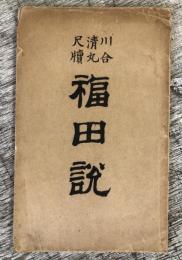 川合
清丸
尺牘
福田説